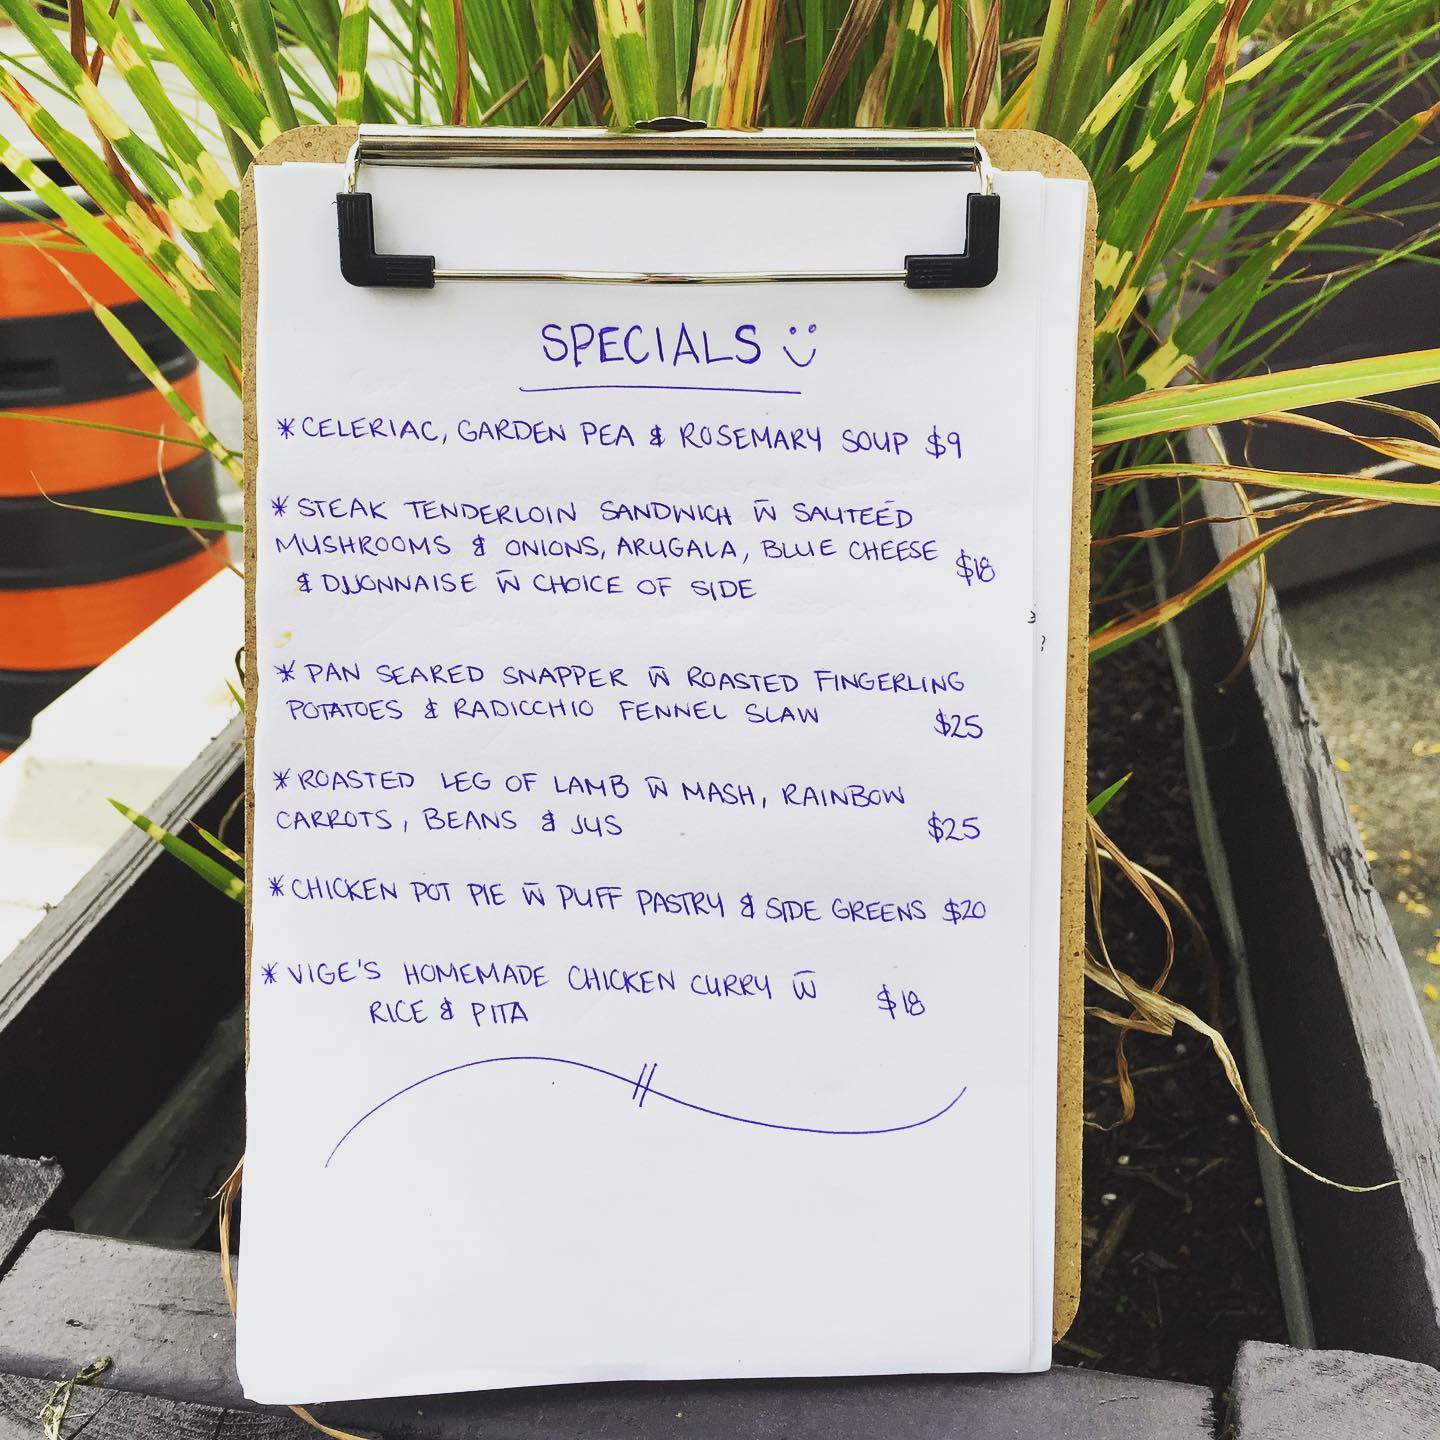 SPECIALS
*CELERIAC, GARDEN PEA & ROSEMARY SOUP $9
*STEAK TENDERLOIN SANDWICH W̄ SAUTEÉD
MUSHROOMS & ONIONS, ARUGALA, BLUE CHEESE
& DIJONNAISE W̄ CHOICE OF SIDE $18
*PAN SEARED SNAPPER W̄ ROASTED FINGERLING
POTATOES & RADICCHIO FENNEL SLAW $25
*ROASTED LEG OF LAMB W̄ MASH, RAINBOW
CARROTS, BEANS & JUS $25
*CHICKEN POT PIE W̄ PUFF PASTRY & SIDE GREENS $20
*VIGE'S HOMEMADE CHICKEN CURRY W̄
RICE & PITA $18